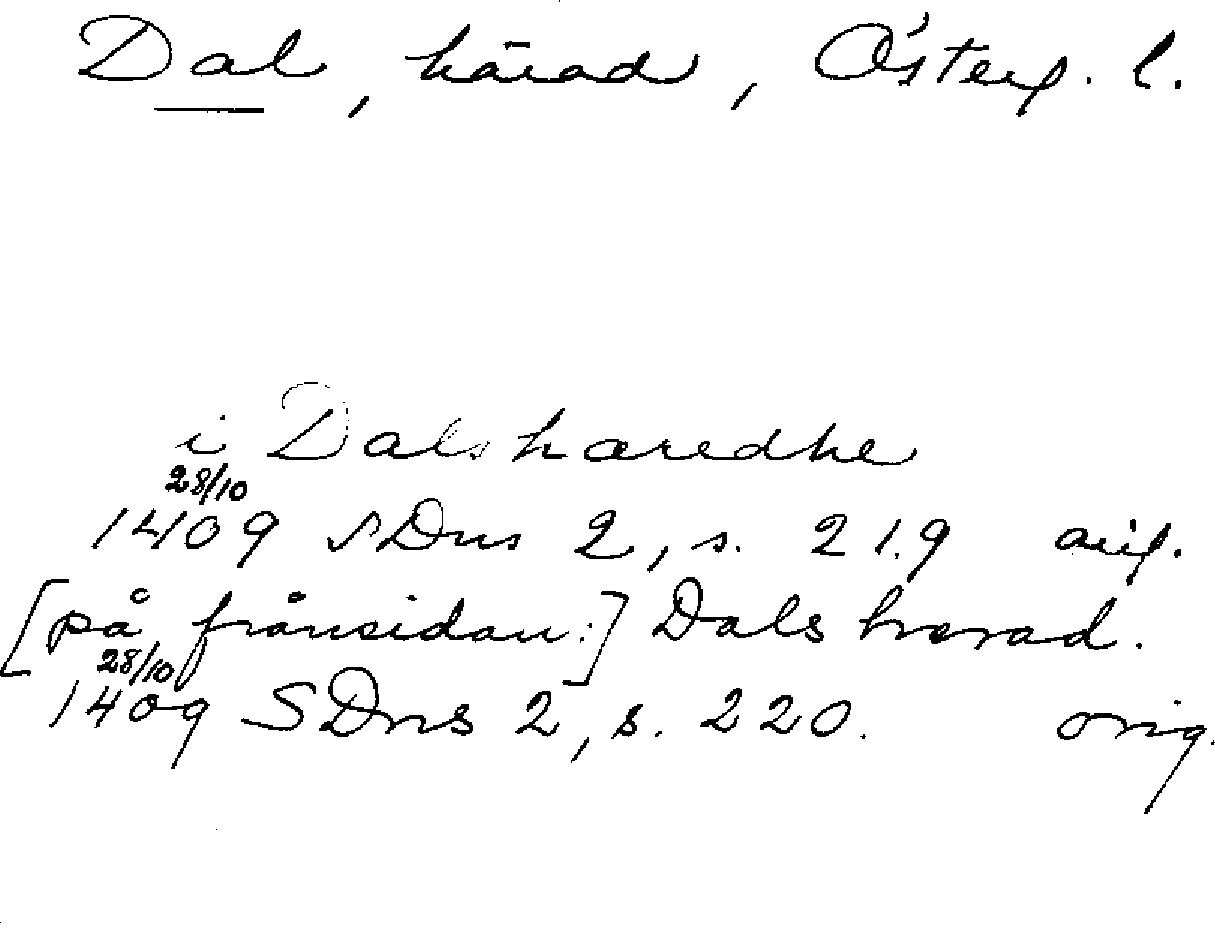 Dal, härad, Österg. l.
i Dalshæredhe
28/10
1409 SDns 2, s. 219 orig.
[på frånsidan:] Dals hærad.
28/10
1409 SDns 2, s. 220. orig.